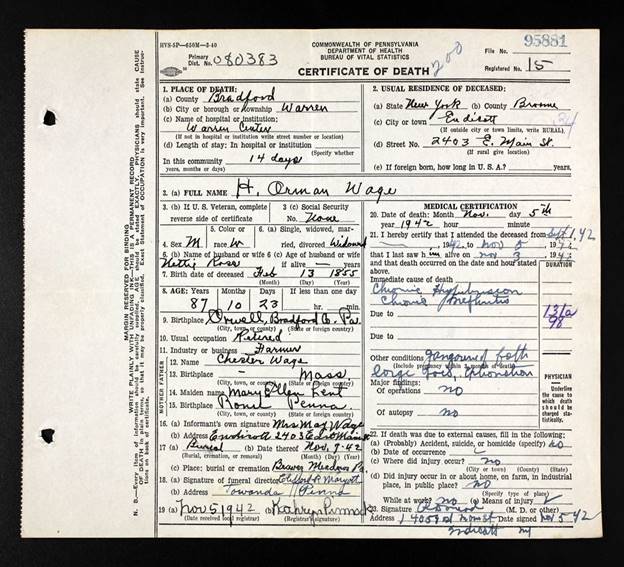 HVS-5P—650M—3-40
COMMONWEALTH OF PENNSYLVANIA
DEPARTMENT OF HEALTH
BUREAU OF VITAL STATISTICS
CERTIFICATE OF DEATH
Primary Dist. No. 080383
200
File No. 95881
Registered No. 15
MARGIN RESERVED FOR BINDING
1. PLACE OF DEATH:
(a) County Bradford
(b) City or borough or township Warren
(c) Name of hospital or institution:
Warren Center
(If not in hospital or institution write street number or location)
(d) Length of stay: In hospital or institution
(Specify whether
In this community 14 days
years, months or days)
2. USUAL RESIDENCE OF DECEASED:
(a) State New York (b) County Broome
(c) City or town Endicott
(If outside city or town limits, write RURAL)
(d) Street No. 2403 E. Main St.
(If rural give location)
(e) If foreign born, how long in U.S.A.? years.
3. (a) FULL NAME H. Orman Wage
3. (b) If U. S. Veteran, complete reverse side of certificate
3. (c) Social Security No. None
4. Sex M.
5. Color or race W
6. (a) Single, widowed, married, divorced Widowed
6. (b) Name of husband or wife
6. (c) Age of husband or wife
7. Birth date of deceased Feb 13 1855
(Month) (Day) (Year)
8. AGE: Years Months Days If less than one day
87 10 23 hr. min.
9. Birthplace Orwell, Bradford Co. Pa.
(City, town, or county) (State or foreign country)
10. Usual occupation Retired
11. Industry or business Farmer
12. Name Chester Wage
13. Birthplace — Mass
(City, town, or county) (State or foreign country)
14. Maiden name Mary Ellen Lent
15. Birthplace Rome Penna.
(City, town, or county) (State or foreign country)
16. (a) Informant's own signature Mrs May Wage
(b) Address Endicott 2403 East Main St
17. (a) Burial (b) Date thereof Nov. 9-42
(Burial, cremation, or removal) (Month) (Day) (Year)
(c) Place; burial or cremation Beaver Meadows Pa.
18. (a) Signature of funeral director
(b) Address Towanda Penna
19. (a) Nov 5 1942 (b)
(Date received local registrar) (Registrar's signature)
MEDICAL CERTIFICATION
20. Date of death: Month Nov. day 5th
year 1942 hour minute
21. I hereby certify that I attended the deceased from
that I last saw him alive on Nov 3
and that death occurred on the date and hour stated above.
DURATION
Immediate cause of death
Chronic
Chronic Nephritis
131a
Due to
Other conditions
(Include pregnancy within 3 months of death)
Major findings:
Of operations no
Of autopsy no
PHYSICIAN
Underline the cause to which death should be charged statistically.
22. If death was due to external causes, fill in the following:
(a) Probably) Accident, suicide, or homicide (specify) no
(b) Date of occurrence
(c) Where did injury occur? no
(d) Did injury occur in or about home, on farm, in industrial place, in public place? no
(Specify type of place)
While at work? no (e) Means of injury
23. Signature (M. D. or other)
Address Date signed Nov 5 42
Endicott NY